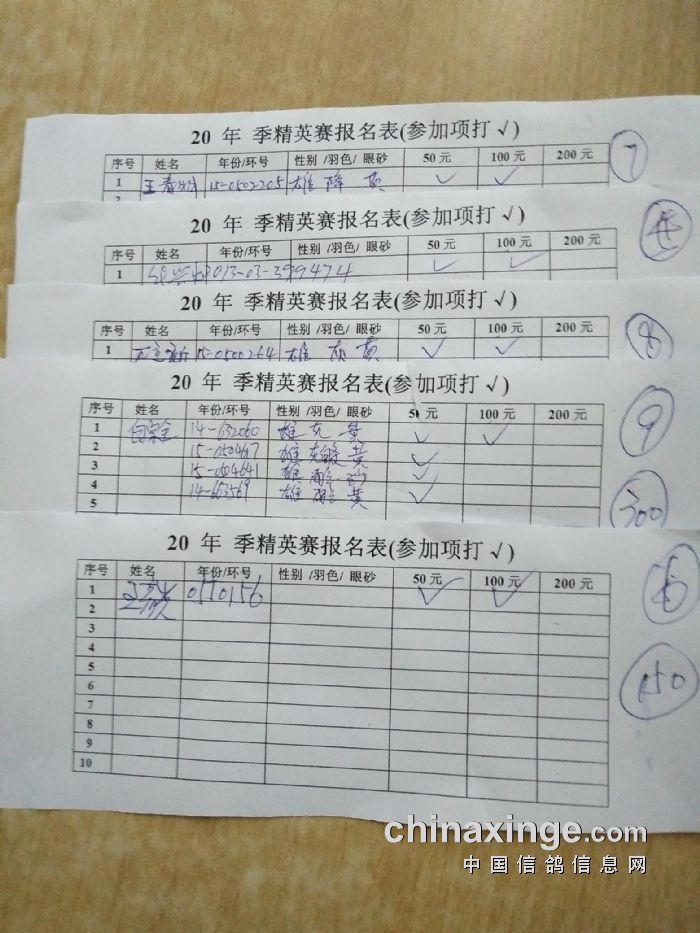 20 年 季精英赛报名表(参加项打√)
序号 姓名 年份/环号 性别 /羽色/ 眼砂 50 元 100 元 200 元
1 15-0502205 雄 黄 √ √
2
7
20 年 季精英赛报名表(参加项打√)
序号 姓名 年份/环号 性别 /羽色/ 眼砂 50 元 100 元 200 元
1 √ √
20 年 季精英赛报名表(参加项打√)
序号 姓名 年份/环号 性别 /羽色/ 眼砂 50 元 100 元 200 元
1 15-0500264 雄 灰 黄 √ √
8
20 年 季精英赛报名表(参加项打√)
序号 姓名 年份/环号 性别 /羽色/ 眼砂 50 元 100 元 200 元
1 14-632060 雄 √ √
2 雄 黄 √
3 15-0504641 雄 砂 √
4 14-663569 雄 黄 √
5
9
300
20 年 季精英赛报名表(参加项打√)
序号 姓名 年份/环号 性别 /羽色/ 眼砂 50 元 100 元 200 元
1 0510156 √ √
2
3
4
5
6
7
8
9
10
150
chinaxinge.com
中国信鸽信息网